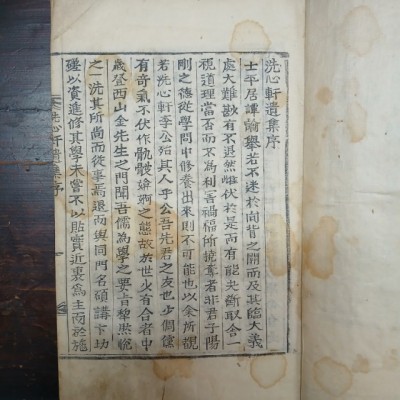 洗心軒遺集序
士平居譚論擧若不迷於向背之開而及其臨大義
處大難數有不退然雌伏於是而有能夫斷取舍一
視道理當否而不為利害禍福所撓奪者非君子陽
剛之德從學問中修養出來則不可能也以余所覩
若洗心軒李公殆其人乎公吾先君之友也少倜儻
有奇氣不伏作骯髒婥婀之態故於世少有合者中
歲登西山金先生之門聞吾儒為學之要旨犂然悅
之一洗其所尚而從事焉退而與同門名碩講劘功
礲以資進修其學未嘗不以貼實近裏為主而於施
洗心軒遺集序